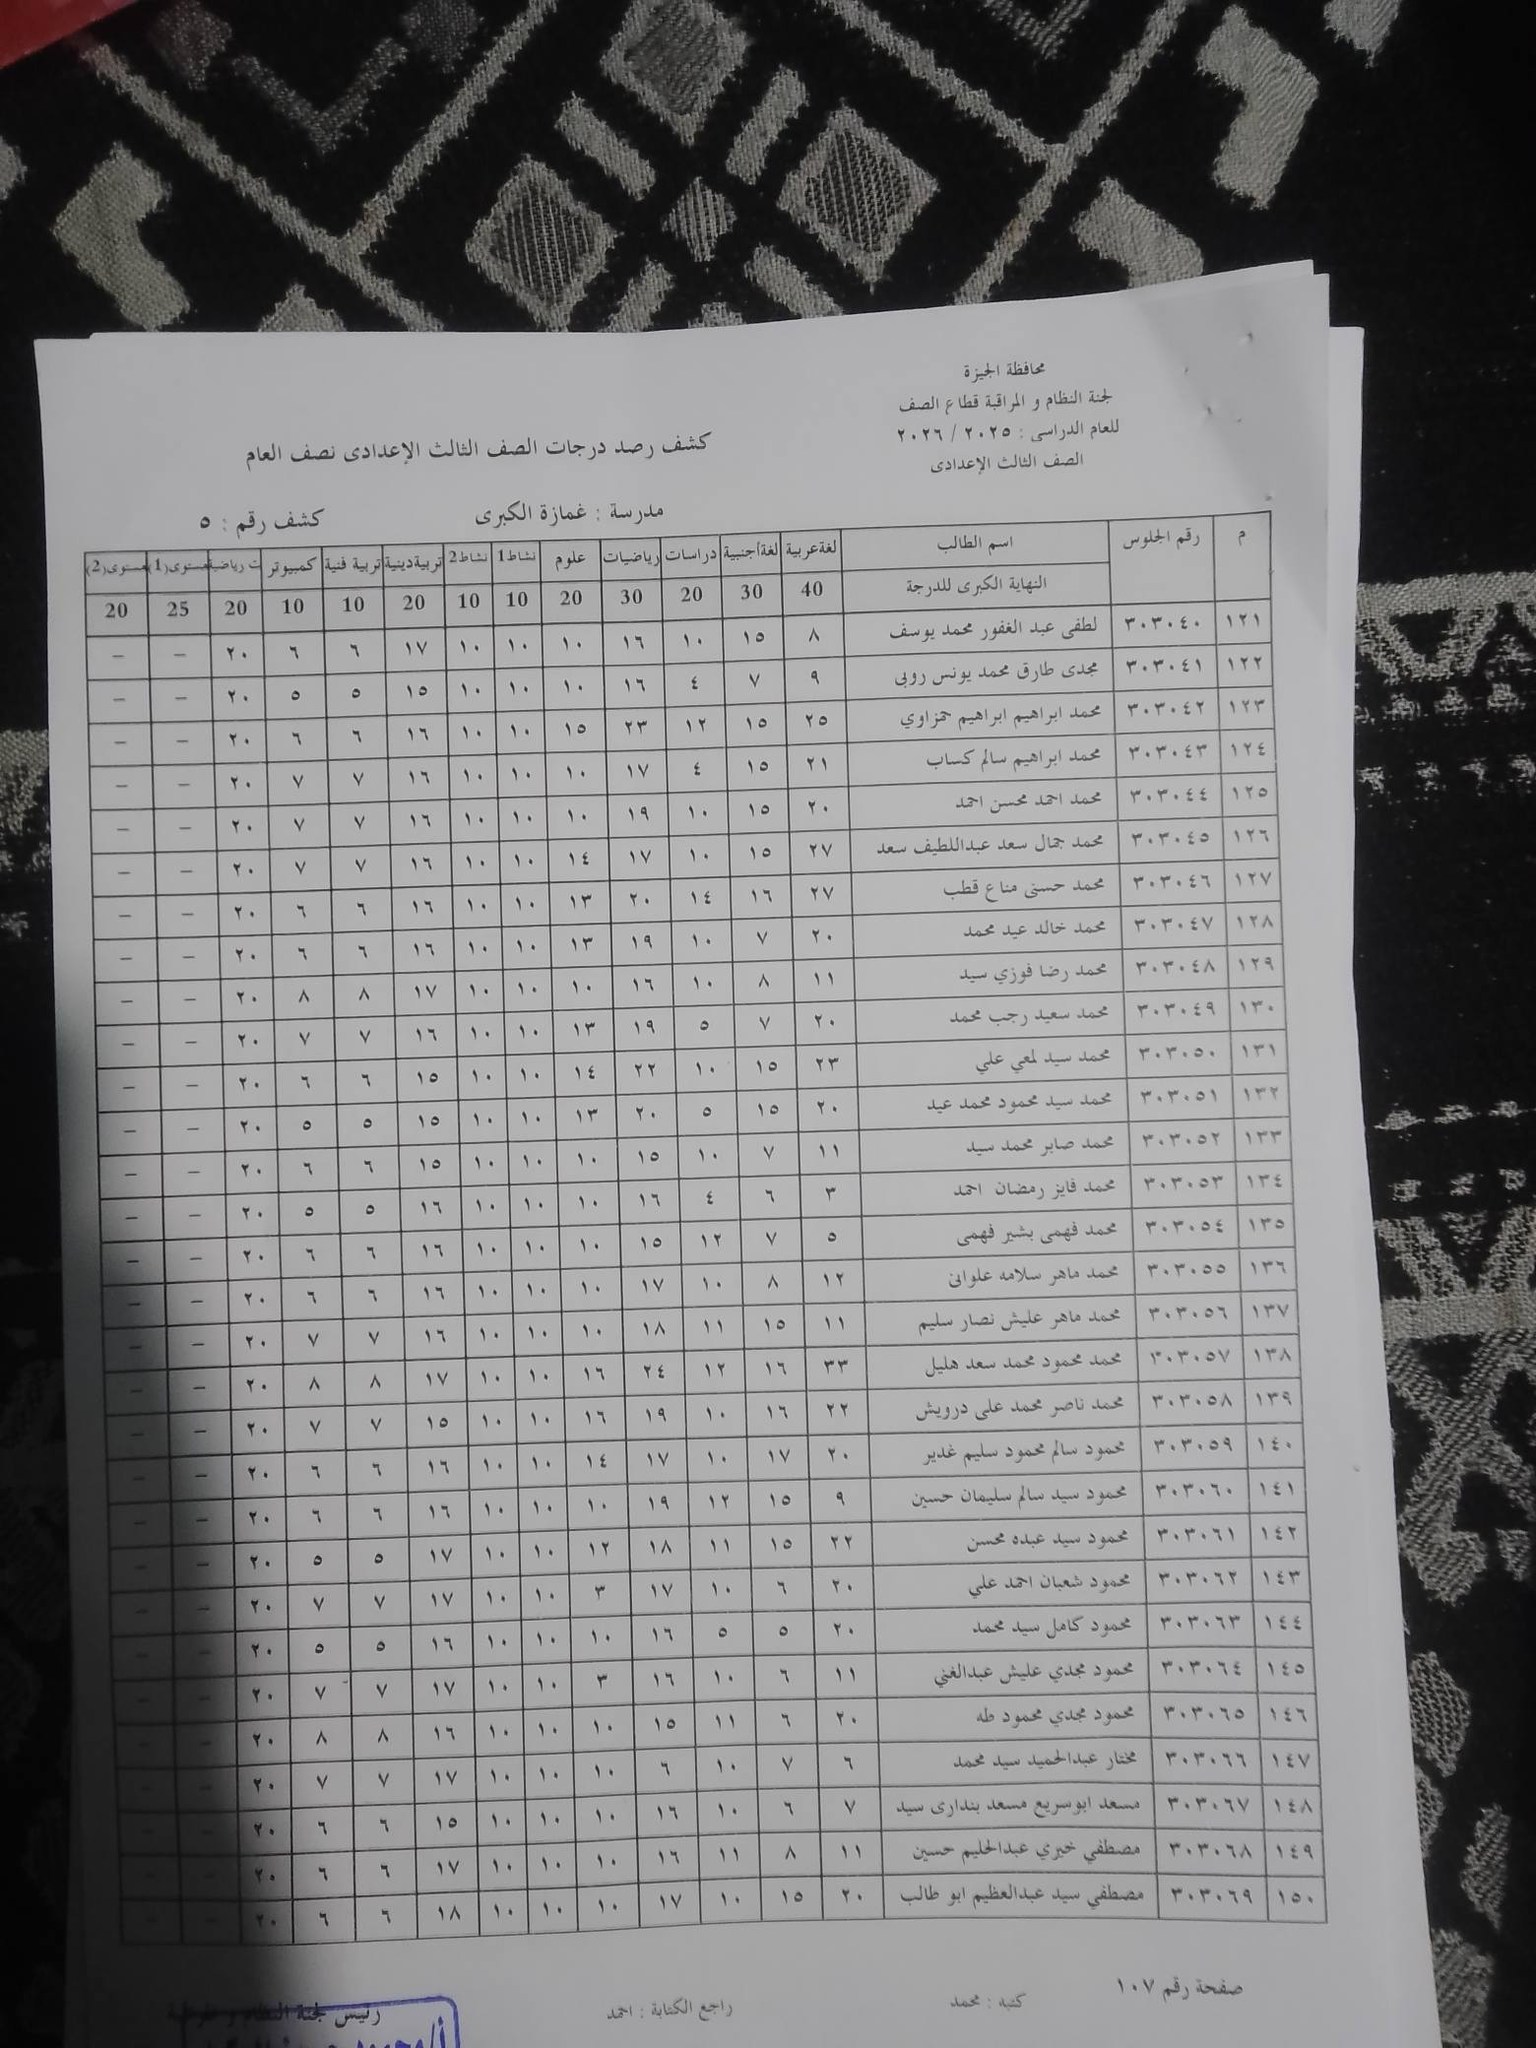 محافظة الجيزة
لجنة النظام و المراقبة قطاع الصف
للعام الدراسى : ٢٠٢٥ / ٢٠٢٦
الصف الثالث الإعدادى
كشف رصد درجات الصف الثالث الإعدادى نصف العام
مدرسة : غمازة الكبرى كشف رقم : ٥
م رقم الجلوس اسم الطالب لغةعربية لغةأجنبية دراسات رياضيات علوم نشاط1 نشاط2 تربيةدينية تربية فنية كمبيوتر ت رياضية مستوى(1) مستوى(2)
النهاية الكبرى للدرجة 40 30 20 30 20 10 10 20 10 10 20 25 20
١٢١ ٣٠٣٠٤٠ لطفى عبد الغفور محمد يوسف ٨ ١٥ ١٠ ١٦ ١٠ ١٠ ١٠ ١٧ ٦ ٦ ٢٠ – –
١٢٢ ٣٠٣٠٤١ مجدى طارق محمد يونس روبى ٩ ٧ ٤ ١٦ ١٠ ١٠ ١٠ ١٥ ٥ ٥ ٢٠ – –
١٢٣ ٣٠٣٠٤٢ محمد ابراهيم ابراهيم حمزاوي ٢٥ ١٥ ١٢ ٢٣ ١٥ ١٠ ١٠ ١٦ ٦ ٦ ٢٠ – –
١٢٤ ٣٠٣٠٤٣ محمد ابراهيم سالم كساب ٢١ ١٥ ٤ ١٧ ١٠ ١٠ ١٠ ١٦ ٧ ٧ ٢٠ – –
١٢٥ ٣٠٣٠٤٤ محمد احمد محسن احمد ٢٠ ١٥ ١٠ ١٩ ١٠ ١٠ ١٠ ١٦ ٧ ٧ ٢٠ – –
١٢٦ ٣٠٣٠٤٥ محمد جمال سعد عبداللطيف سعد ٢٧ ١٥ ١٠ ١٧ ١٤ ١٠ ١٠ ١٦ ٧ ٧ ٢٠ – –
١٢٧ ٣٠٣٠٤٦ محمد حسنى مناع قطب ٢٧ ١٦ ١٤ ٢٠ ١٣ ١٠ ١٠ ١٦ ٦ ٦ ٢٠ – –
١٢٨ ٣٠٣٠٤٧ محمد خالد عيد محمد ٢٠ ٧ ١٠ ١٩ ١٣ ١٠ ١٠ ١٦ ٦ ٦ ٢٠ – –
١٢٩ ٣٠٣٠٤٨ محمد رضا فوزي سيد ١١ ٨ ١٠ ١٦ ١٠ ١٠ ١٠ ١٧ ٨ ٨ ٢٠ – –
١٣٠ ٣٠٣٠٤٩ محمد سعيد رجب محمد ٢٠ ٧ ٥ ١٩ ١٣ ١٠ ١٠ ١٦ ٧ ٧ ٢٠ – –
١٣١ ٣٠٣٠٥٠ محمد سيد لمعي علي ٢٣ ١٥ ١٠ ٢٢ ١٤ ١٠ ١٠ ١٥ ٦ ٦ ٢٠ – –
١٣٢ ٣٠٣٠٥١ محمد سيد محمود محمد عيد ٢٠ ١٥ ٥ ٢٠ ١٣ ١٠ ١٠ ١٥ ٥ ٥ ٢٠ – –
١٣٣ ٣٠٣٠٥٢ محمد صابر محمد سيد ١١ ٧ ١٠ ١٥ ١٠ ١٠ ١٠ ١٥ ٦ ٦ ٢٠ – –
١٣٤ ٣٠٣٠٥٣ محمد فايز رمضان احمد ٣ ٦ ٤ ١٦ ١٠ ١٠ ١٠ ١٦ ٥ ٥ ٢٠ – –
١٣٥ ٣٠٣٠٥٤ محمد فهمى بشير فهمى ٥ ٧ ١٢ ١٥ ١٠ ١٠ ١٠ ١٦ ٦ ٦ ٢٠ – –
١٣٦ ٣٠٣٠٥٥ محمد ماهر سلامه علوانى ١٢ ٨ ١٠ ١٧ ١٠ ١٠ ١٠ ١٦ ٦ ٦ ٢٠ – –
١٣٧ ٣٠٣٠٥٦ محمد ماهر عليش نصار سليم ١١ ١٥ ١١ ١٨ ١٠ ١٠ ١٠ ١٦ ٧ ٧ ٢٠ – –
١٣٨ ٣٠٣٠٥٧ محمد محمود محمد سعد هليل ٣٣ ١٦ ١٢ ٢٤ ١٦ ١٠ ١٠ ١٧ ٨ ٨ ٢٠ – –
١٣٩ ٣٠٣٠٥٨ محمد ناصر محمد على درويش ٢٢ ١٦ ١٠ ١٩ ١٦ ١٠ ١٠ ١٥ ٧ ٧ ٢٠ – –
١٤٠ ٣٠٣٠٥٩ محمود سالم محمود سليم غدير ٢٠ ١٧ ١٠ ١٧ ١٤ ١٠ ١٠ ١٦ ٦ ٦ ٢٠ – –
١٤١ ٣٠٣٠٦٠ محمود سيد سالم سليمان حسين ٩ ١٥ ١٢ ١٩ ١٠ ١٠ ١٠ ١٦ ٦ ٦ ٢٠ – –
١٤٢ ٣٠٣٠٦١ محمود سيد عبده محسن ٢٢ ١٥ ١١ ١٨ ١٢ ١٠ ١٠ ١٧ ٥ ٥ ٢٠ – –
١٤٣ ٣٠٣٠٦٢ محمود شعبان احمد علي ٢٠ ٦ ١٠ ١٧ ٣ ١٠ ١٠ ١٧ ٧ ٧ ٢٠ – –
١٤٤ ٣٠٣٠٦٣ محمود كامل سيد محمد ٢٠ ٥ ٥ ١٦ ١٠ ١٠ ١٠ ١٦ ٥ ٥ ٢٠ – –
١٤٥ ٣٠٣٠٦٤ محمود مجدي عليش عبدالغني ١١ ٦ ١٠ ١٦ ٣ ١٠ ١٠ ١٧ ٧ ٧ ٢٠ – –
١٤٦ ٣٠٣٠٦٥ محمود مجدي محمود طه ٢٠ ٦ ١١ ١٥ ١٠ ١٠ ١٠ ١٦ ٨ ٨ ٢٠ – –
١٤٧ ٣٠٣٠٦٦ مختار عبدالحميد سيد محمد ٦ ٧ ١٠ ٦ ١٠ ١٠ ١٠ ١٧ ٧ ٧ ٢٠ – –
١٤٨ ٣٠٣٠٦٧ مسعد ابوسريع مسعد بندارى سيد ٧ ٦ ١٠ ١٦ ١٠ ١٠ ١٠ ١٥ ٦ ٦ ٢٠ – –
١٤٩ ٣٠٣٠٦٨ مصطفي خيري عبدالحليم حسين ١١ ٨ ١١ ١٦ ١٠ ١٠ ١٠ ١٧ ٦ ٦ ٢٠ – –
١٥٠ ٣٠٣٠٦٩ مصطفي سيد عبدالعظيم ابو طالب ٢٠ ١٥ ١٠ ١٧ ١٠ ١٠ ١٠ ١٨ ٦ ٦ ٢٠ – –
صفحة رقم ١٠٧ كتبه : محمد راجع الكتابة : احمد رئيس لجنة النظام و